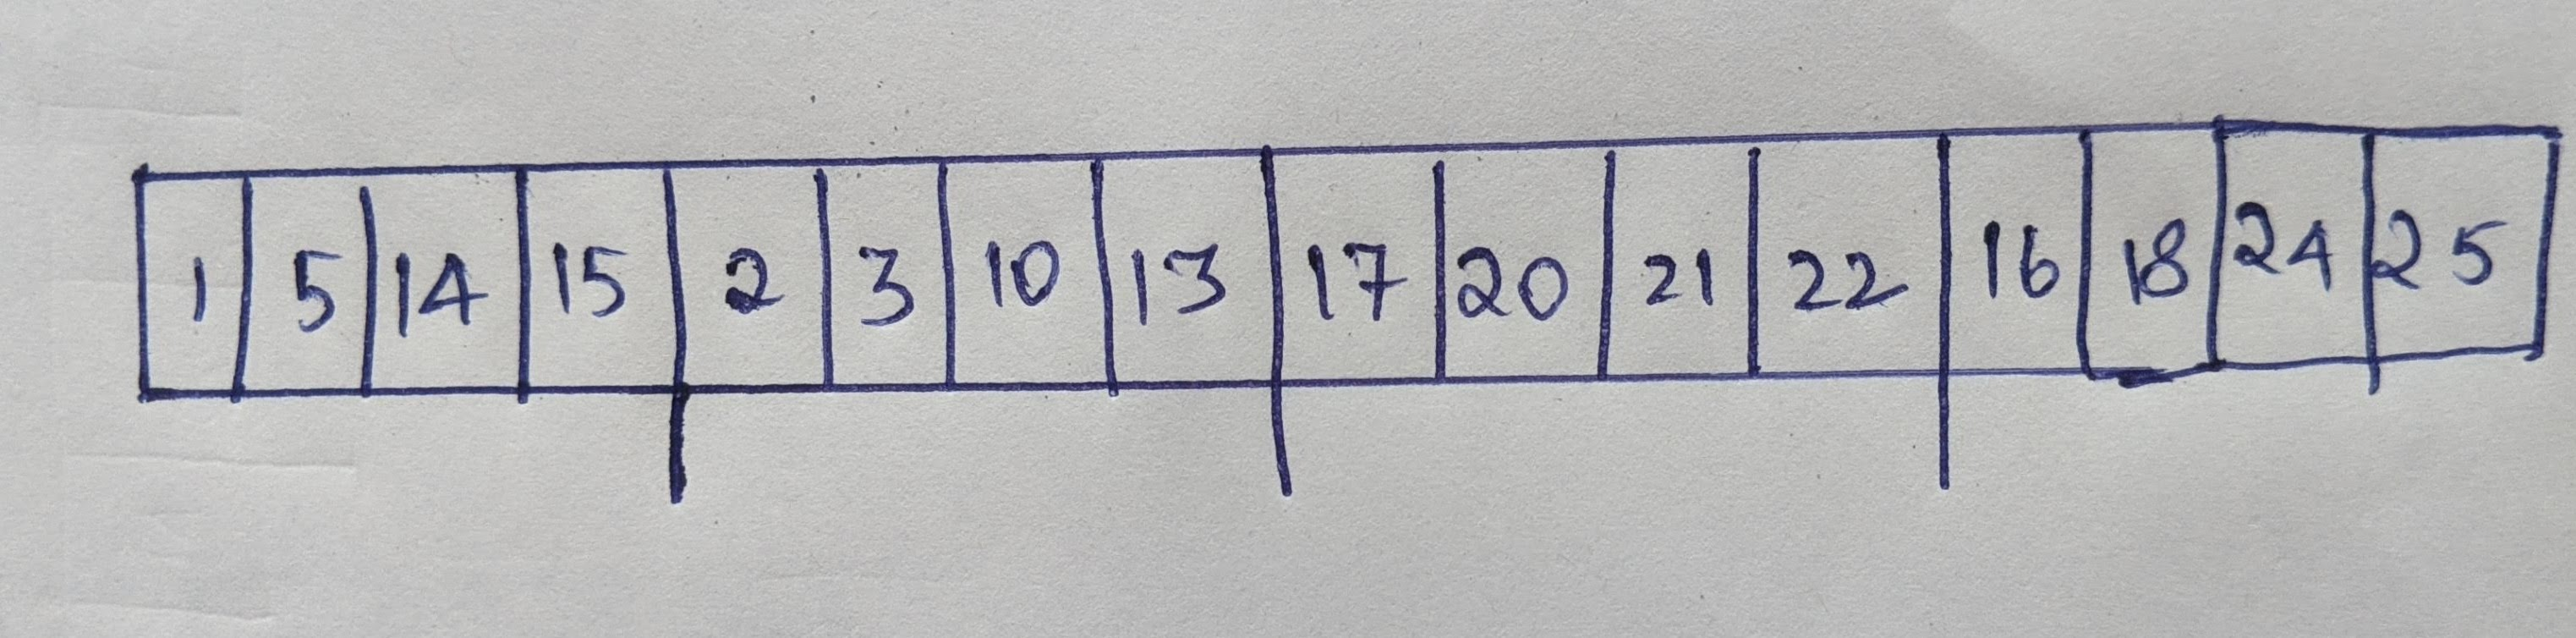 1 5 14 15 2 3 10 13 17 20 21 22 16 18 24 25